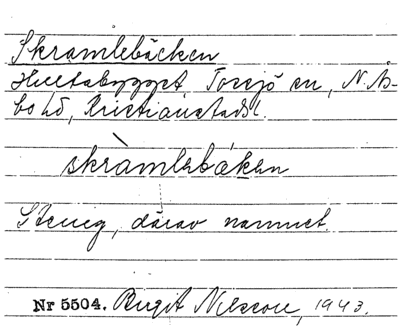 Skramlebäcken
Hultabygget, Tossjö sn, N. Ås-
bo hd, Kristianstads l.
skràmlebákan
Stenig, därav namnet.
Nr 5504. Birgit Nilsson, 1943.